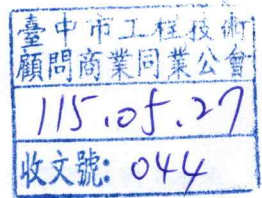 臺中市工程技術
顧問商業同業公會
115.05.27
收文號: 044